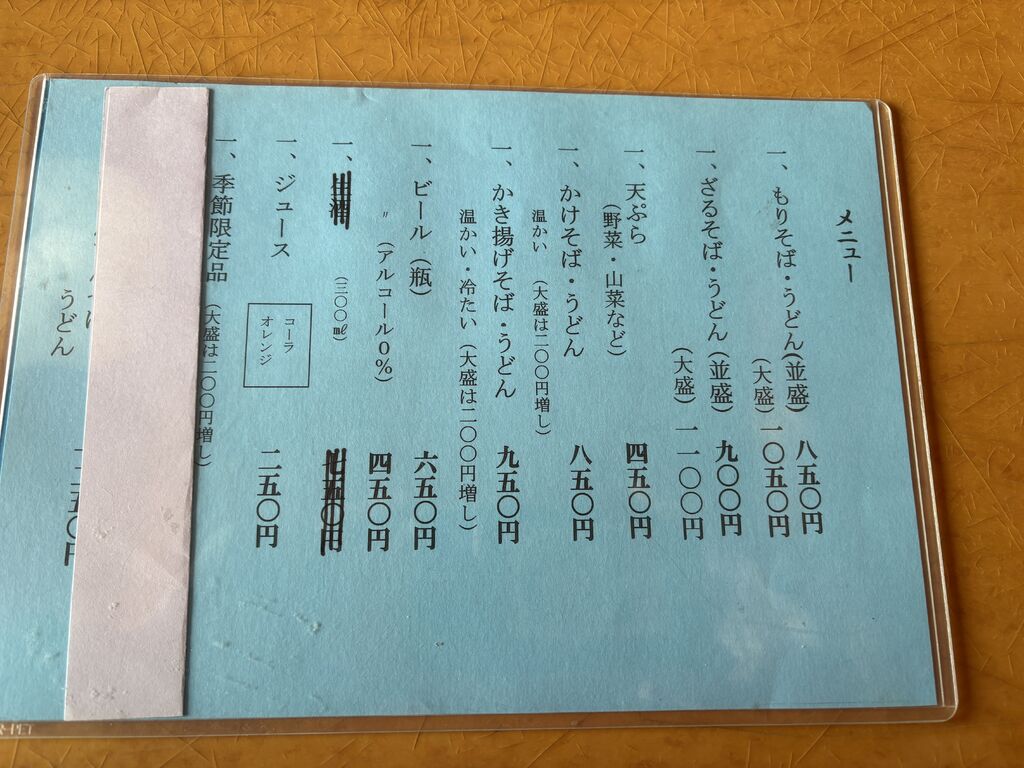 メニュー
一、もりそば・うどん(並盛) 八五〇円
(大盛) 一〇五〇円
一、ざるそば・うどん(並盛) 九〇〇円
(大盛) 一一〇〇円
一、天ぷら 四五〇円
(野菜・山菜など)
一、かけそば・うどん 八五〇円
温かい (大盛は二〇〇円増し)
一、かき揚げそば・うどん 九五〇円
温かい・冷たい (大盛は二〇〇円増し)
一、ビール(瓶) 六五〇円
〃 (アルコール0%) 四五〇円
一、 (三〇〇㎖) 七五〇円
一、ジュース 二五〇円
コーラ
オレンジ
一、季節限定品
(大盛は二〇〇円増し)
うどん